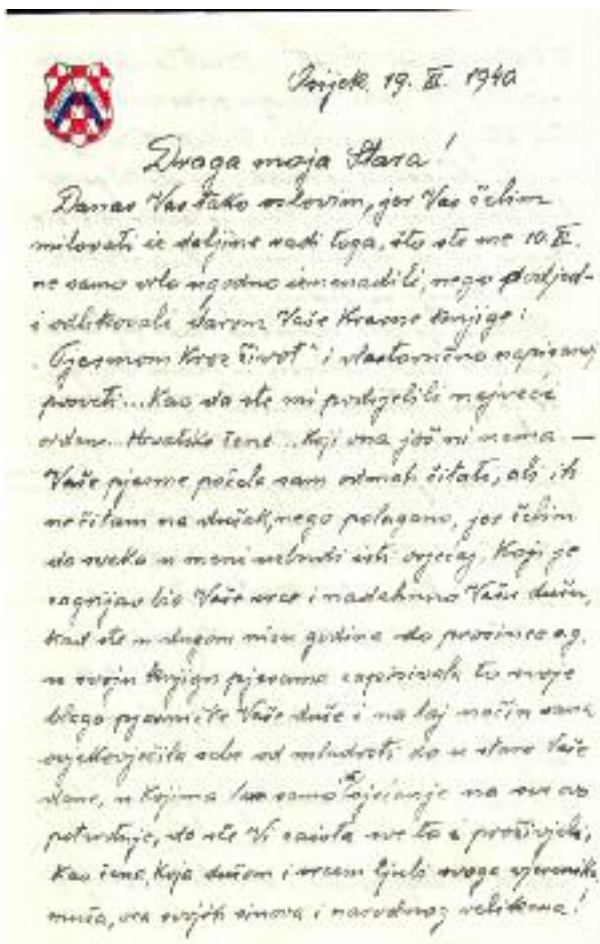 Osijek, 19. XI. 1940
Draga moja Stara!
Danas Vas tako oslovim, jer Vas želim
milovati iz daljine radi toga, što ste me 10. XI.
ne samo vrlo ugodno iznenadili, nego podjed-
i odlikovali darom Vaše krasne knjige:
"Pjesmom kroz život" i vlastoručno napisanoj
posveti... Kao da ste mi podijelili najveći
orden... Hrvatske žene... Koji ona još ni nema —
Vaše pjesme počela sam odmah čitati, ali ih
ne čitam na dušak, nego polagano, jer želim
da svaka u meni uzbudi isti osjećaj, Koji je
zagrijao bio Vaše srce i nadahnuo Vašu dušu,
kad ste u dugom nizu godina do prosinca o.g.
u svoju knjigu pjesama zapisivala to svoje
blago pjesničke Vaše duše i na taj način sama
ovjekovječila sebe od mladosti do u stare Vaše
dane, u Kojima samo sjećanje na sve ovo
potvrđuje, da ste Vi zaista sve to i proživjeli,
Kao žena, Koja dušom i srcem ljubi svoga vjerenika
muža, oca svojih sinova i narodnog velikana!